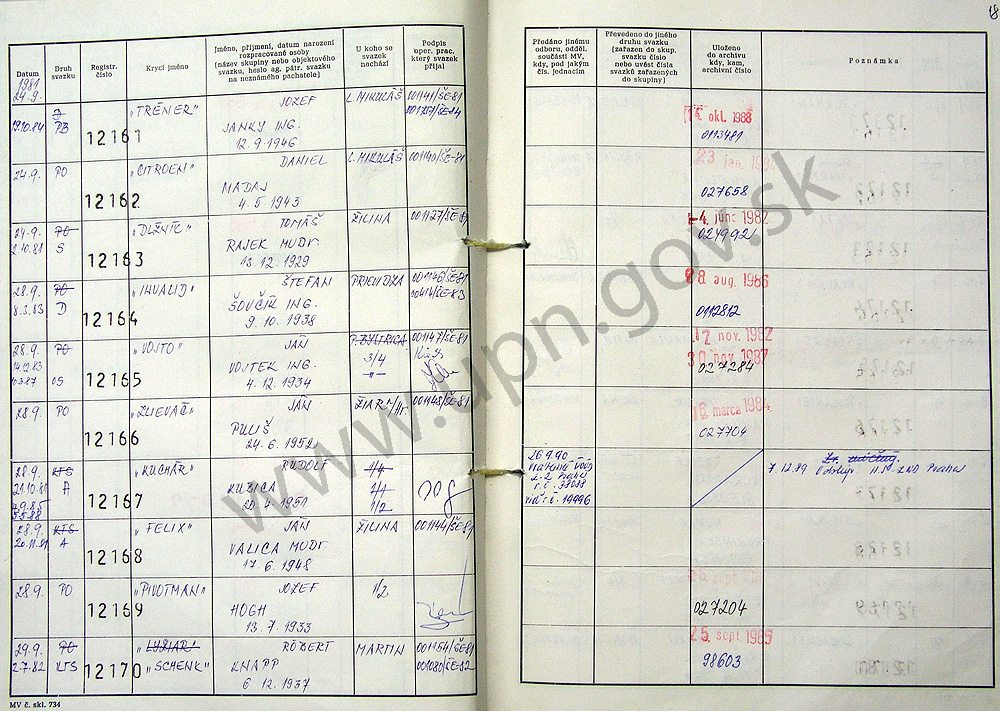 Datum
Druh svazku
Registr. číslo
Krycí jméno
Jméno, příjmení, datum narození
rozpracované osoby
(název skupiny nebo objektového
svazku, heslo ag. pátr. svazku
na neznámého pachatele)
U koho se
svazek
nachází
Podpis
oper. prac.
který svazek
přijal
Předáno jinému
odboru, odděl.
součásti MV,
kdy, pod jakým
čís. jednacím
Převedeno do jiného
druhu svazku
(zařazen do skup.
svazku číslo
nebo uvést čísla
svazků zařazených
do skupiny)
Uloženo
do archivu
kdy, kam,
archivní číslo
Poznámka
1981
24.9. „TRÉNER" JOZEF L. MIKULÁŠ 001141/ŠE-81
19.10.84 PB 12161 JANKY ING.
12.9.1946
okl. 1988
0113481
24.9. PO „CITROEN" DANIEL L. MIKULÁŠ 001140/ŠE-81
12162 MADAJ
4.5.1943
23. jan.
027658
24.9. PO „DLŽNÍC" TOMÁŠ ŽILINA 001127/ŠE-81
2.10.81 S 12163 RAJEK MUDr.
13.12.1929
-4. jún: 1982
024992
28.9. PO „INVALID" ŠTEFAN PRIEVIDZA 001146/ŠE-81
8.3.83 D 12164 ŠOVČÍK ING.
9.10.1938
08 aug. 1986
0112812
28.9. PO „VOJTO" JÁN P. BYSTRICA 001147/ŠE-81
14.12.83 3/4
10.3.87 OS 12165 VOJTEK ING. -"-
4.12.1934
17 nov. 1982
30 nov. 1987
027284
28.9. PO „ZLIEVAČ" JÁN ŽIAR n/Hr. 001148/ŠE-81
12166 PULIŠ
24.6.1952
16 marca 1984
027704
28.9. KTS „KUCHÁR" RUDOLF
A 12167 KUBICA
1951 1/2
26.9.90
7.12.89
28.9. KTS „FELIX" JÁN ŽILINA 001144/ŠE-81
20.11.81 A 12168 VALICA MUDr.
17.6.1948
28.9. PO „PIVOTMAN" JOZEF 1/2
12169 HOGH
13.7.1933
sept.
027204
29.9. PO RÓBERT MARTIN 001154/ŠE-81
2.7.82 KTS 12170 „SCHENK" KNAPP 001080/ŠE-82
6.12.1937
25. sept. 1985
98603
MV č. skl. 734
www.upn.gov.sk